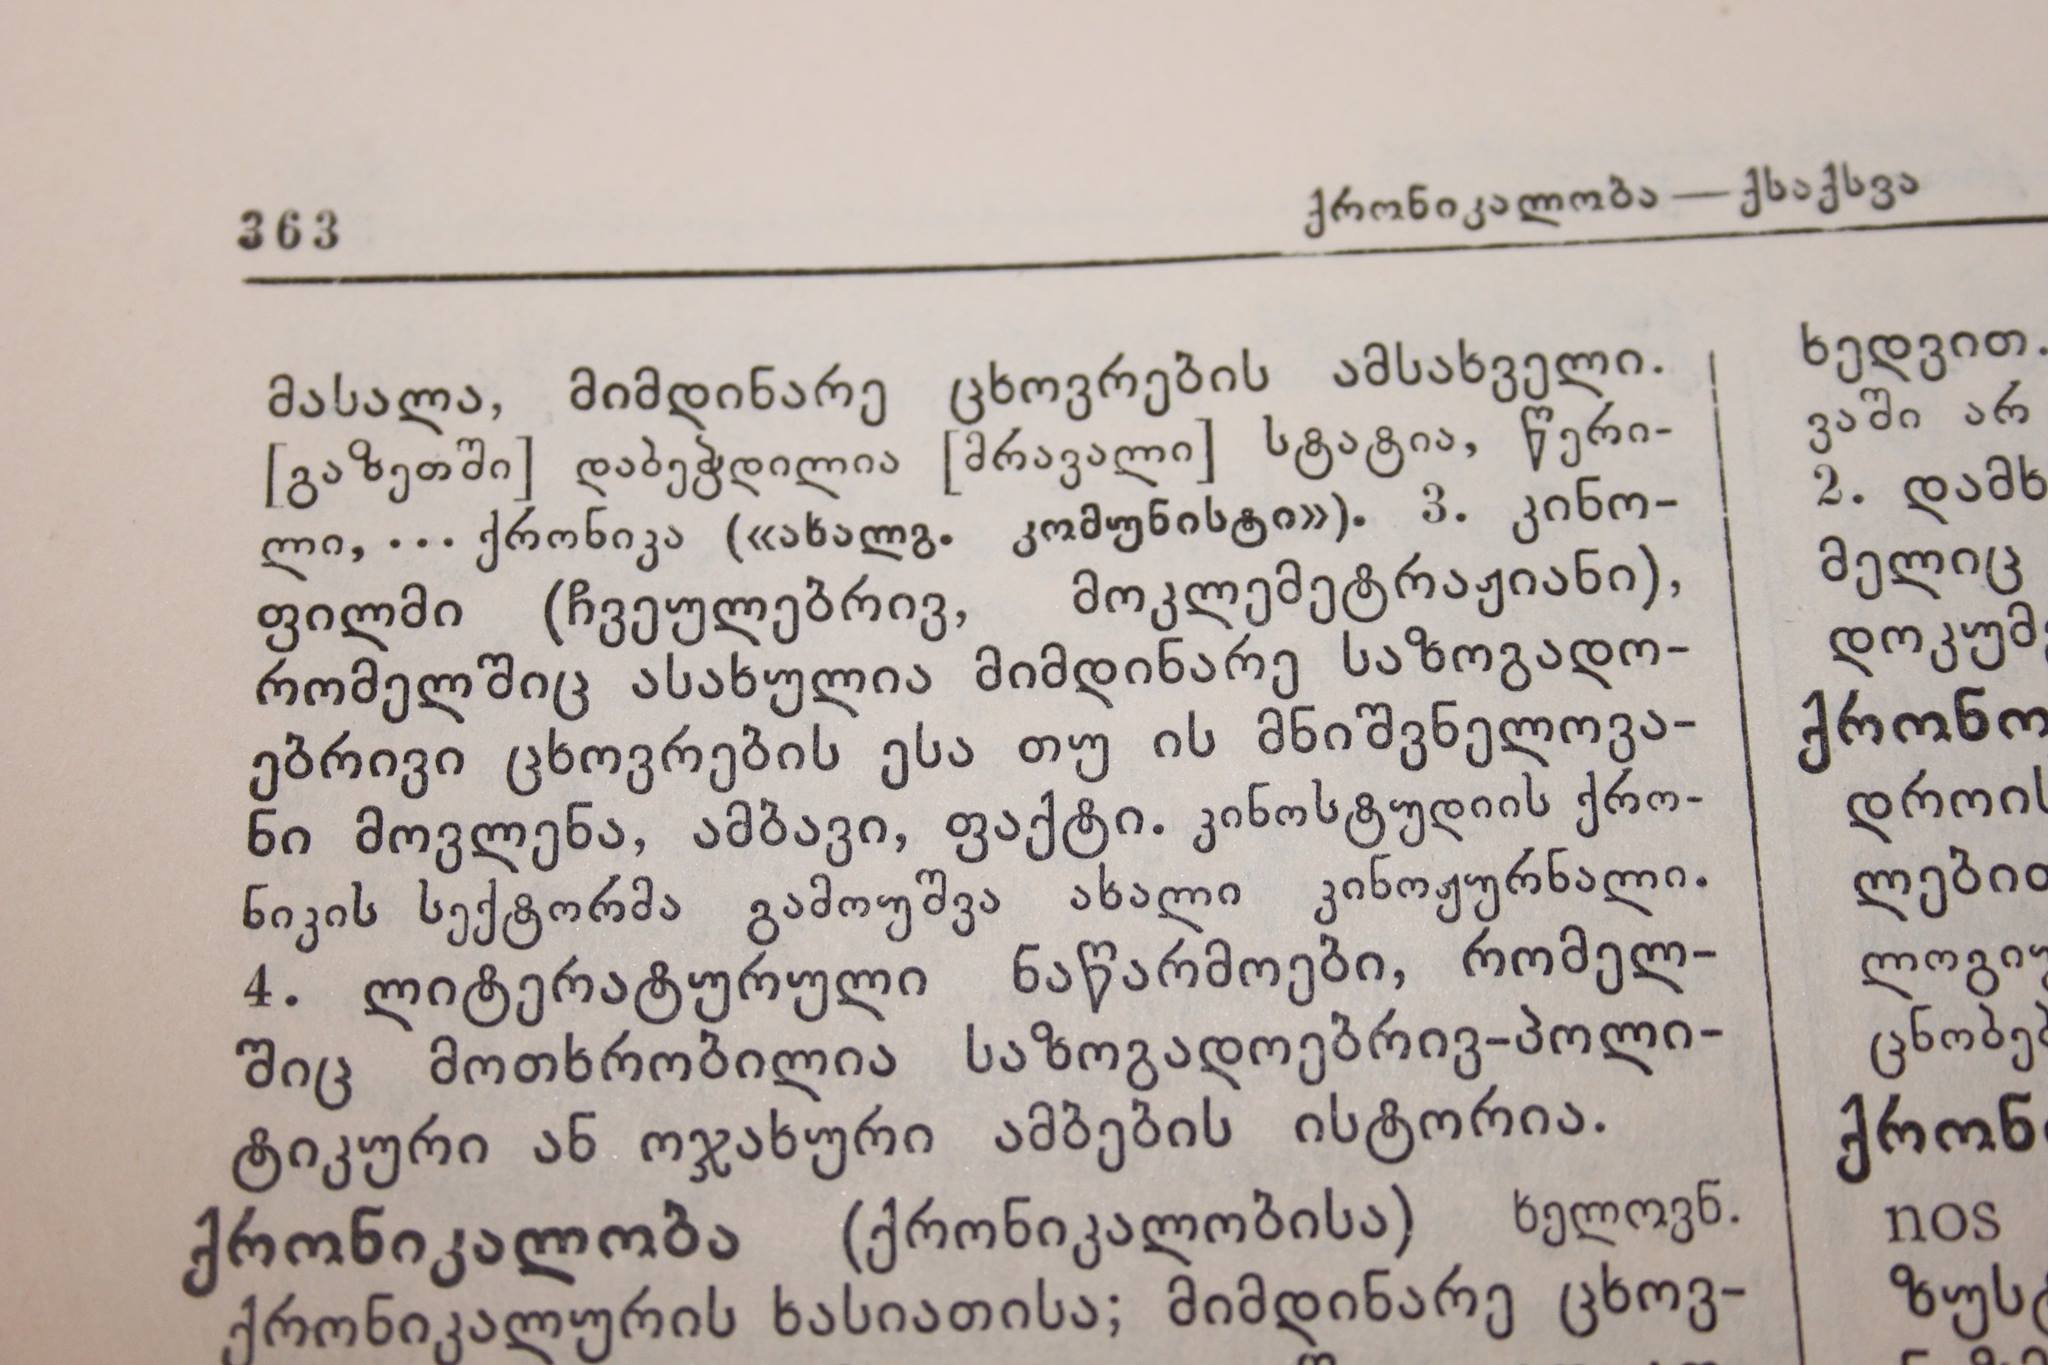 363
ქრონიკალობა — ქსაქსვა
მასალა, მიმდინარე ცხოვრების ამსახველი.
[გაზეთში] დაბეჭდილია [მრავალი] სტატია, წერი-
ლი, ... ქრონიკა («ახალგ. კომუნისტი»). 3. კინო-
ფილმი (ჩვეულებრივ, მოკლემეტრაჟიანი),
რომელშიც ასახულია მიმდინარე საზოგადო-
ებრივი ცხოვრების ესა თუ ის მნიშვნელოვა-
ნი მოვლენა, ამბავი, ფაქტი. კინოსტუდიის ქრო-
ნიკის სექტორმა გამოუშვა ახალი კინოჟურნალი.
4. ლიტერატურული ნაწარმოები, რომელ-
შიც მოთხრობილია საზოგადოებრივ-პოლი-
ტიკური ან ოჯახური ამბების ისტორია.
ქრონიკალობა (ქრონიკალობისა) ხელოვნ.
ქრონიკალურის ხასიათისა; მიმდინარე ცხოვ-
ხედვით.
ვაში არ
2. დამხ
მელიც
დოკუმე
ქრონო
დროის
ლებით
ლოგიუ
ცნობებ
ქრონ
nos
ზუსტ